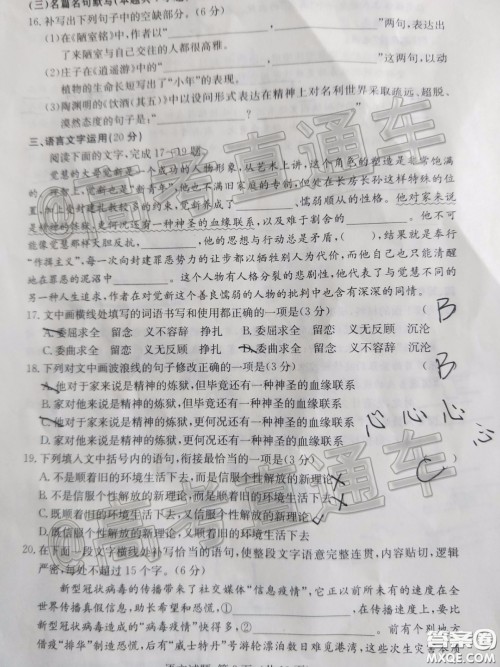 (三)名篇名句默写(本题共1小题,6分)
16.补写出下列句子中的空缺部分。(6分)
(1)在《陋室铭》中,作者以“ , ”两句,表达出
了陋室与自己交往的人都很高雅。
(2)庄子在《逍遥游》中的“ , ”这两句,以动
植物的生命长短写出了“小年”的表现。
(3)陶渊明的《饮酒(其五)》中以设问形式表达在精神上对名利世界采取疏远、超脱、
漠然态度的句子是:“ ? ”
三、语言文字运用(20分)
阅读下面的文字,完成17~19题。
觉慧的大哥觉新是一个成功的人物形象,从艺术上讲,这个角色的塑造也非常成
觉新也是“新青年”,他也不满旧家庭的专制,但处在长房长孙这样特殊的
封建礼教较多的约束,觉新养成了 、懦弱顺从的性格。他对家来说
是精神的炼狱,但毕竟还有一种神圣的血缘联系,以及难于割舍的 。他不可
能像觉慧那样大胆反抗, ,他的思想与行动总是矛盾,( )。觉新奉行
“作揖主义”,每一次向封建遗老的让步都以牺牲别人为代价,而他自己也只能清醒
地在罪恶的泥沼中 。这个人物有人格分裂的悲剧性,他代表了与觉慧不同的另
一种人生道路,作者对觉新这个善良懦弱的人物的批判中也含有深深的同情。
17.文中画横线处填写的词语书写和使用都正确的一项是(3分) ( B
A.委屈求全 留恋 义不容辞 挣扎 B.委曲求全 留恋 义无反顾 沉沦
C.委屈求全 留念 义无反顾 挣扎 D.委曲求全 留念 义不容辞 沉沦
18.下列对文中画波浪线的句子修改正确的一项是(3分) ( B
A.他对于家来说是精神的炼狱,但毕竟还有一种神圣的血缘联系
B.家对他来说是精神的炼狱,但毕竟还有一种神圣的血缘联系
C.他对于家来说是精神的炼狱,而且还有一种神圣的血缘联系
D.家对他来说是精神的炼狱,而且还有一种神圣的血缘联系
心 心 心 心
19.下列填入文中括号内的语句,衔接最恰当的一项是(3分) ( C
A.不是顺着旧的环境生活下去,而是信服个性解放的新理论
B.不是信服个性解放的新理论,而是顺着旧的环境生活下去
C.既顺着旧的环境生活下去,又信服个性解放的新理论
D.既信服个性解放的新理论,又顺着旧的环境生活下去
20.在下面一段文字横线处补写恰当的语句,使整段文字语意完整连贯,内容贴切,逻辑
严密,每处不超过15个字。(6分)
新型冠状病毒的传播带来了社交媒体“信息疫情”,它正以前所未有的速度在全
世界传播真假信息,助长恐慌情绪。与新型冠状病毒 ,有的先前在地方
借疫“排华”制造恶端,后有“威士特丹”号游轮漂泊数日无港可停,这些次生灾害不
@高考直通车
@高考直通车
@高考直通车
答案圈
MXQE.COM